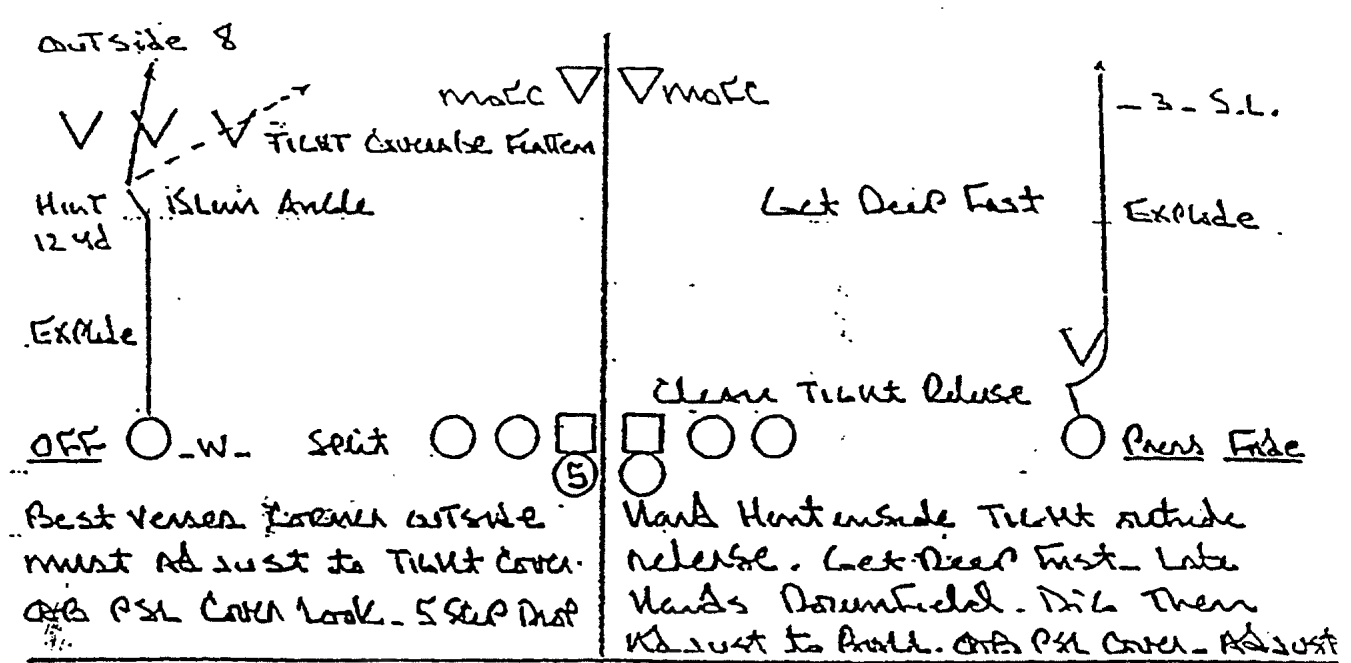 OUTSide 8
MOFC
TIGHT Coverage Flatten
Hint
12 yd
Slum Angle
Explode
OFF
-W-
Split
5
Best Verses Corner outside
must Adjust to TIGHT Cover.
QB PSL Cover Look - 5 Step Drop
MOFC
- 3 - S.L.
Get Deep Fast
Explode
Clean TIGHT Release
Press Fade
Hard Hint inside TIGHT outside
release. Get Deep Fast - Late
Hands Downfield. Dig Then
Adjust to Ball. QB PSL Cover - Adjust